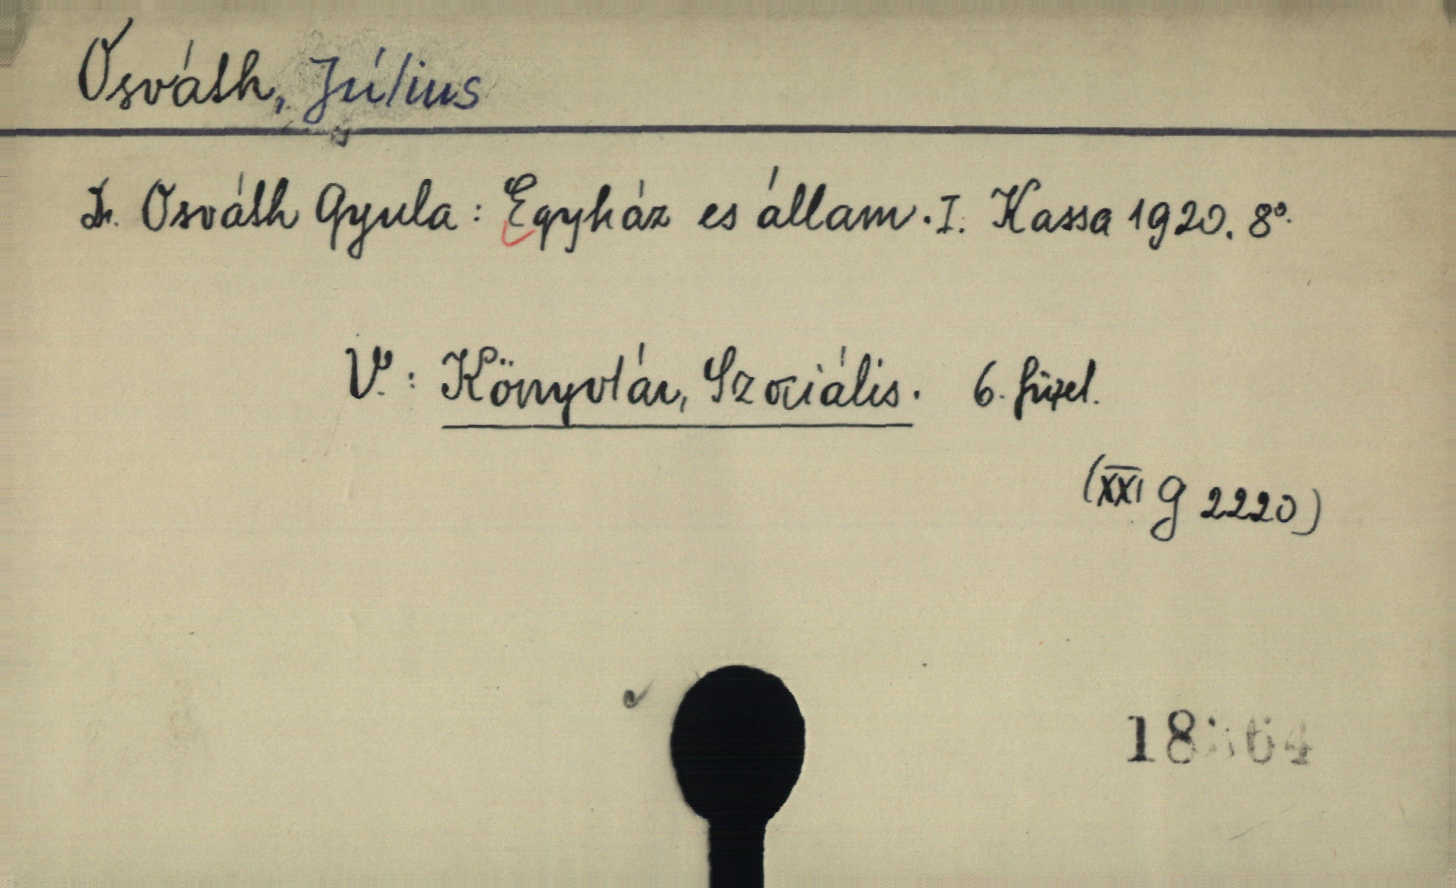 Osváth, Július
Dr. Osváth Gyula: Egyház es állam. I. Kassa 1920. 8°.
V.: Könyvtár, Szociális. 6. füzet.
(XXI G 2220)